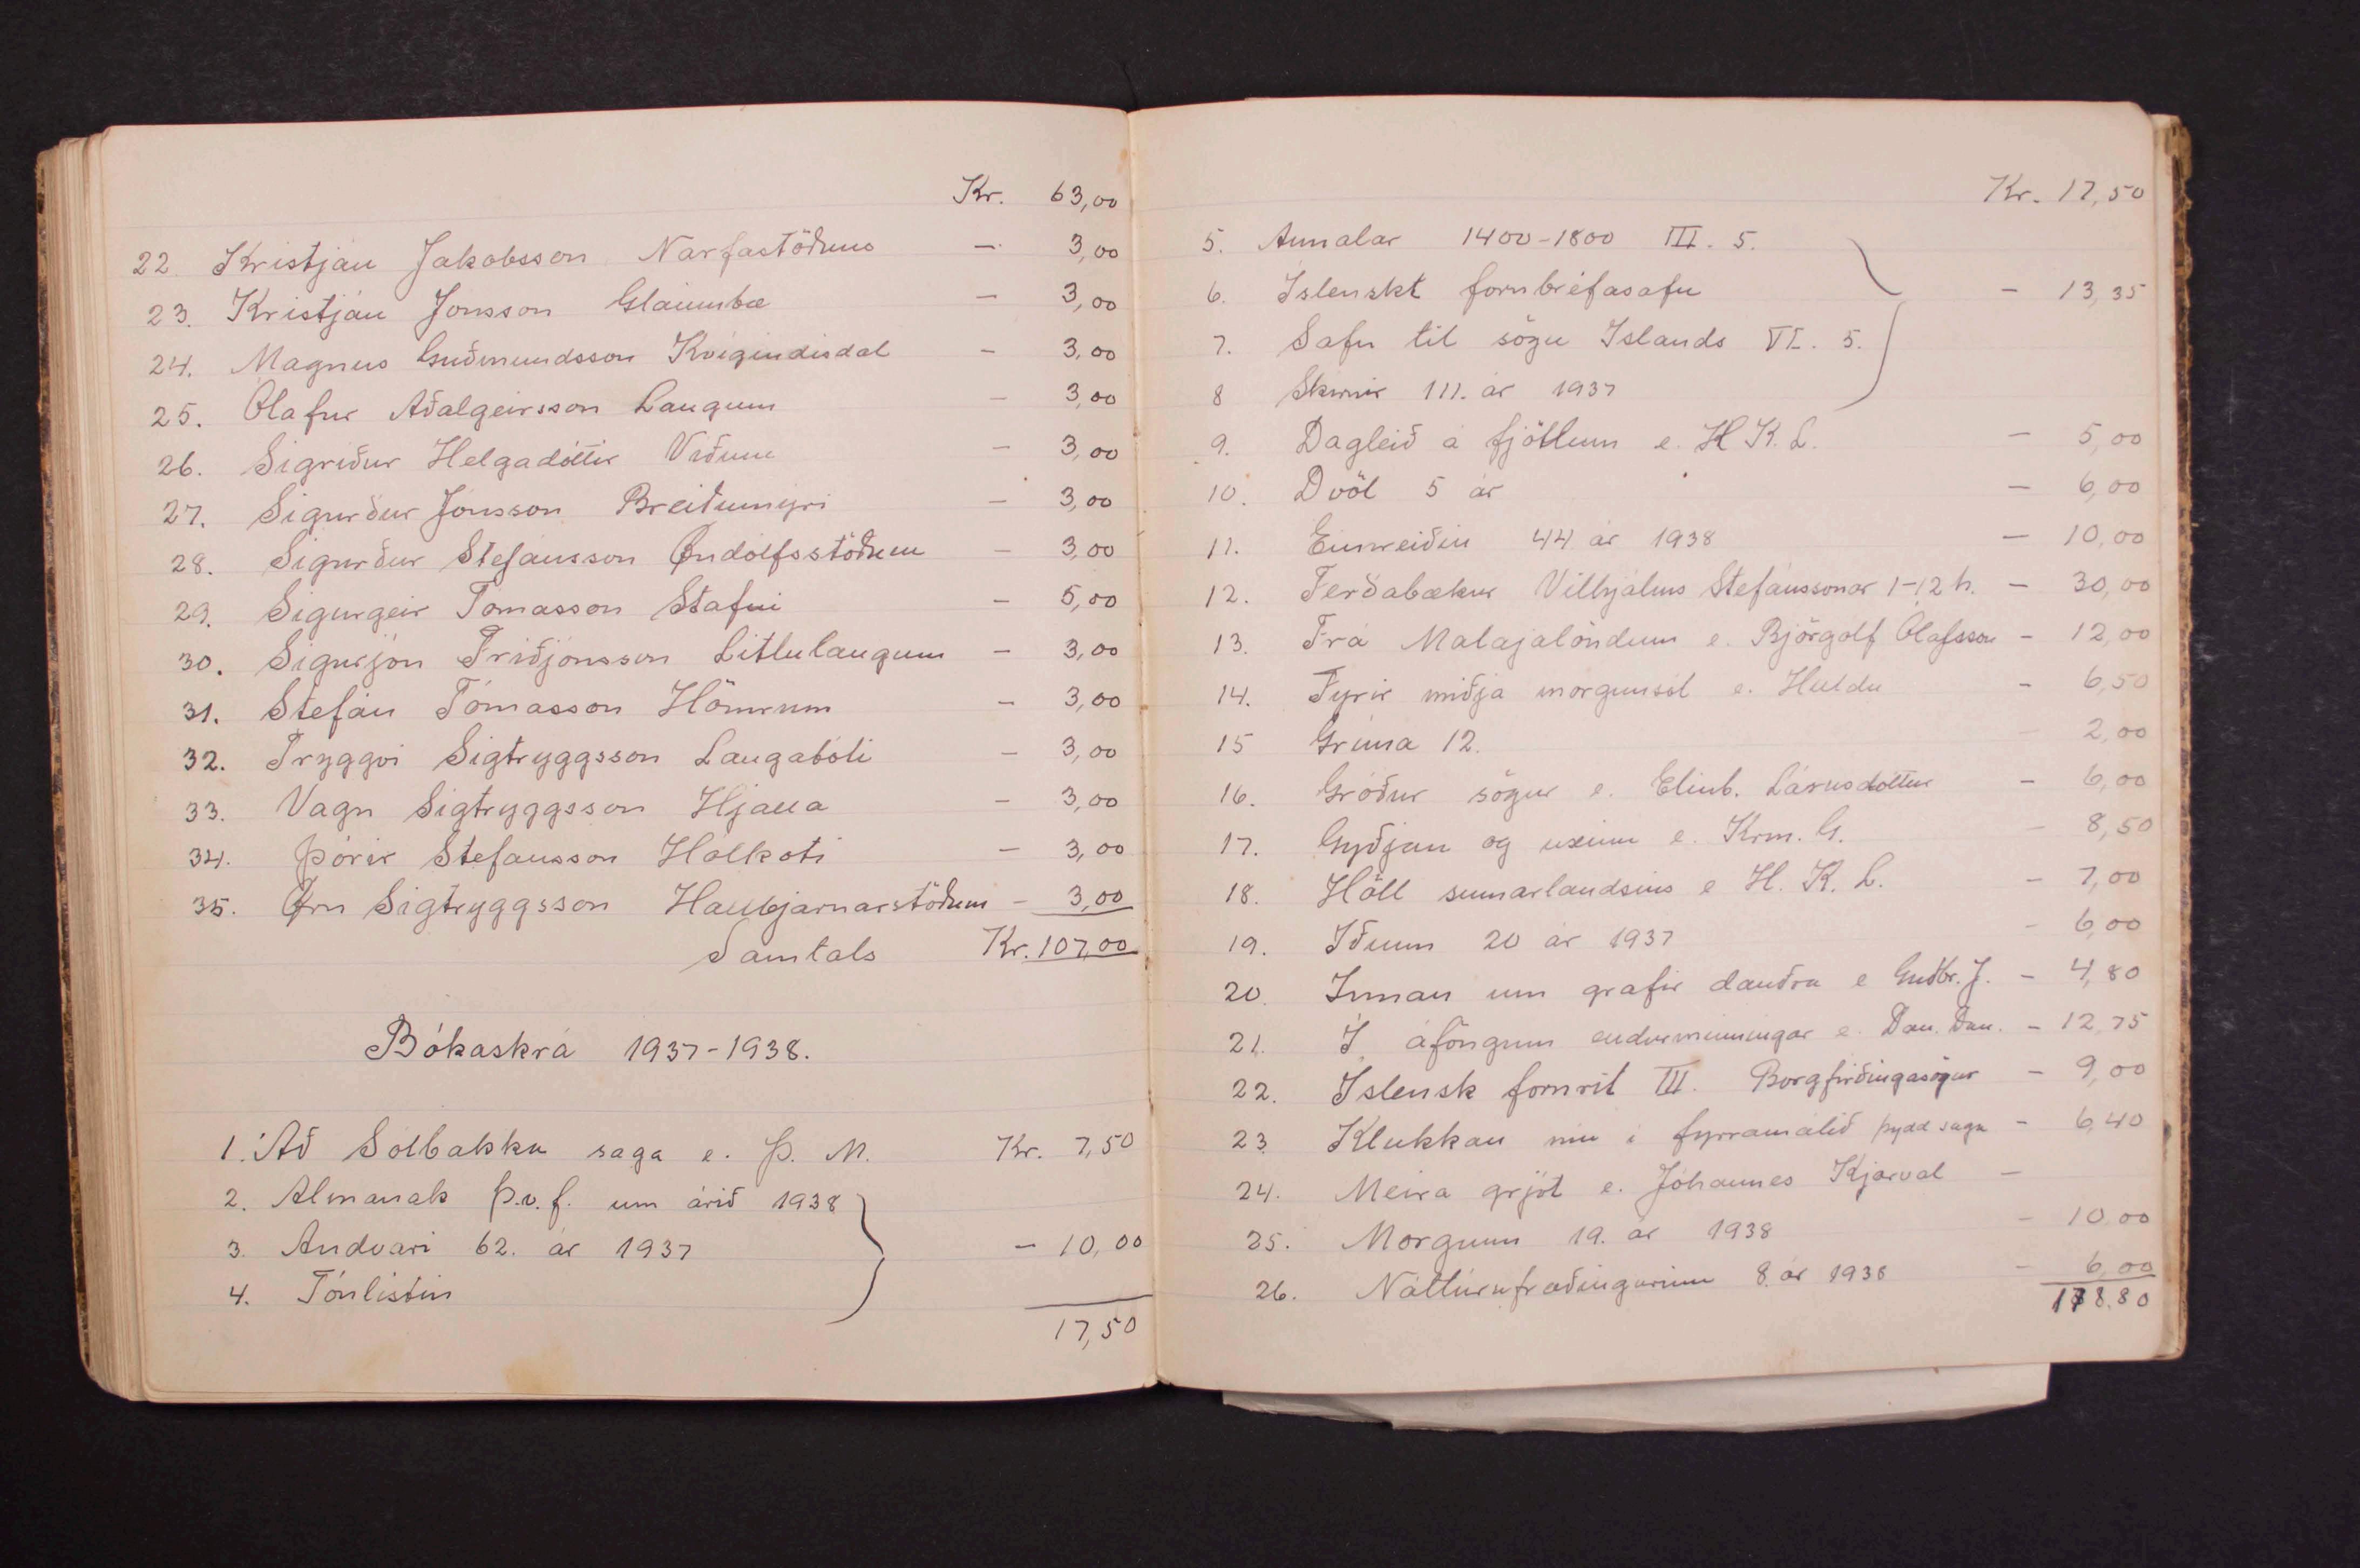 Kr. 63,00
22. Kristján Jakobsson Narfastöðum — 3,00
23. Kristján Jónsson Glaumbæ — 3,00
24. Magnus Guðmundsson Kvígindisdal — 3,00
25. Ólafur Aðalgeirsson Laugum — 3,00
26. Sigríður Helgadóttir Víðum — 3,00
27. Sigurður Jónsson Breiðumýri — 3,00
28. Sigurður Stefánsson Öndólfsstöðum — 3,00
29. Sigurgeir Tómasson Stafni — 5,00
30. Sigurjón Friðjónsson Litlulaugum — 3,00
31. Stefán Tómasson Hömrum — 3,00
32. Tryggvi Sigtryggsson Laugabóli — 3,00
33. Vagn Sigtryggsson Hjalla — 3,00
34. Þórir Stefánsson Hólkoti — 3,00
35. Örn Sigtryggsson Hallbjarnarstöðum — 3,00
Samtals Kr. 107,00
Bókaskrá 1937-1938.
1. Að Sólbakka saga e. Þ. M. Kr. 7,50
2. Almanak Þ.v.f. um árið 1938
3. Andvari 62. ár 1937 — 10,00
4. Tónlistin
17,50
Kr. 17,50
5. Annalar 1400-1800 III. 5.
6. Íslenskt fornbréfasafn — 13,35
7. Safn til sögu Islands VI. 5.
8 Skírnir 111. ár 1937
9. Dagleið á fjöllum e. H K. L. — 5,00
10. Dvöl 5 ár — 6,00
11. Eimreiðin 44 ár 1938 — 10,00
12. Ferðabækur Vilhjálms Stefánssonar 1-12 h. — 30,00
13. Frá Malajalöndum e. Björgólf Ólafsson — 12,00
14. Fyrir miðja morgunsól e. Huldu — 6,50
15 Gríma 12. — 2,00
16. Gróður sögur e. Elinb. Lárusdóttur — 6,00
17. Gyðjan og uxinn e. Krm. G. — 8,50
18. Höll sumarlandsins e H. K. L. — 7,00
19. Iðunn 20 ár 1937 — 6,00
20. Innan um grafir dauðra e Guðbr. J. — 4,80
21. Í áföngum endurminningar e. Dan. Dan. — 12,75
22. Islensk fornrit III. Borgfirðingasögur — 9,00
23. Klukkan níu í fyrramálið þýdd saga — 6,40
24. Meira grjót e. Jóhannes Kjarval —
25. Morgunn 19. ár 1938 — 10,00
26. Náttúrufræðingurinn 8. ár 1938 — 6,00
178.80